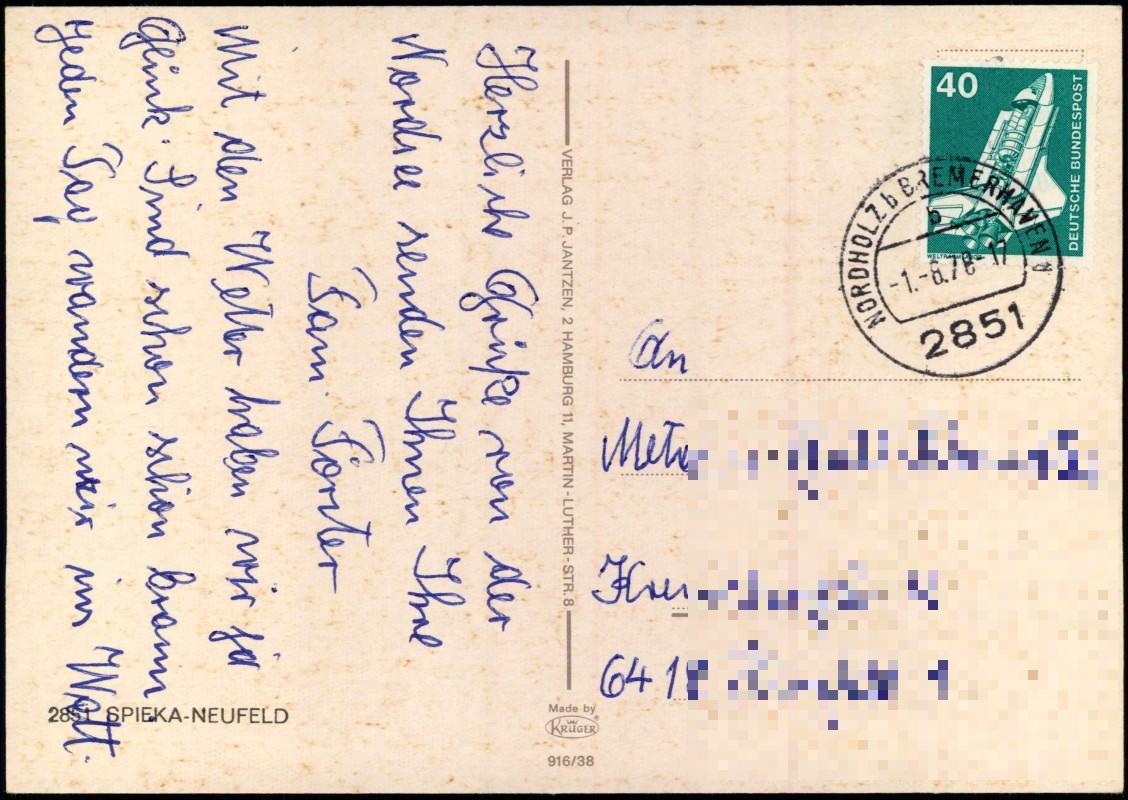 Herzliche Grüße von der
Nordsee senden Ihnen Ihre
Fam. Förster
Mit dem Wetter haben wir ja
Glück. Sind schon schön braun.
Jeden Tag wandern wir ins Watt.
2851 SPIEKA-NEUFELD
VERLAG J. P. JANTZEN, 2 HAMBURG 11, MARTIN-LUTHER-STR. 8
Made by
KRÜGER
916/38
40
DEUTSCHE BUNDESPOST
NORDHOLZ b BREMERHAVEN
b
-1.-6.78-17
2851
An